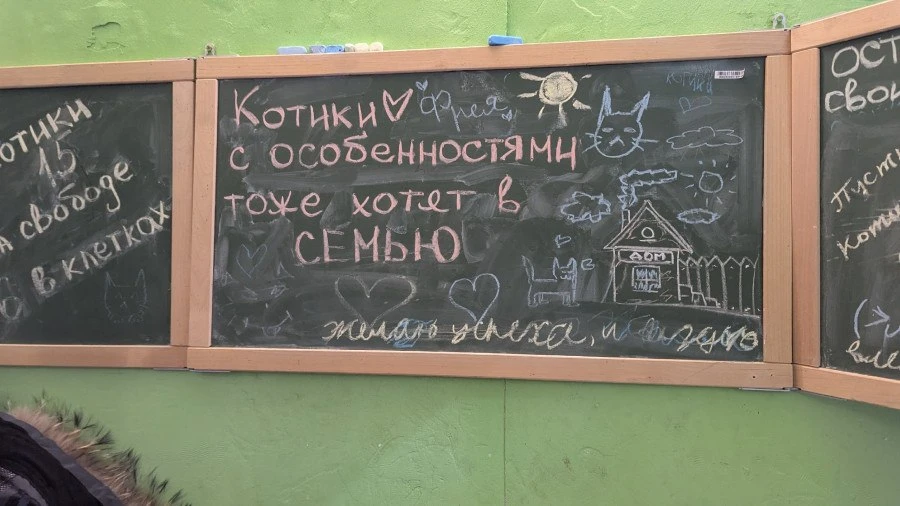 котики
15
на свободе
8 в клетках
Котики Фрея
с особенностями
тоже хотят в
СЕМЬЮ
ДОМ
желаю успеха, и
ОСТ
свои
Пусть
коти